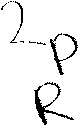 2-P
R